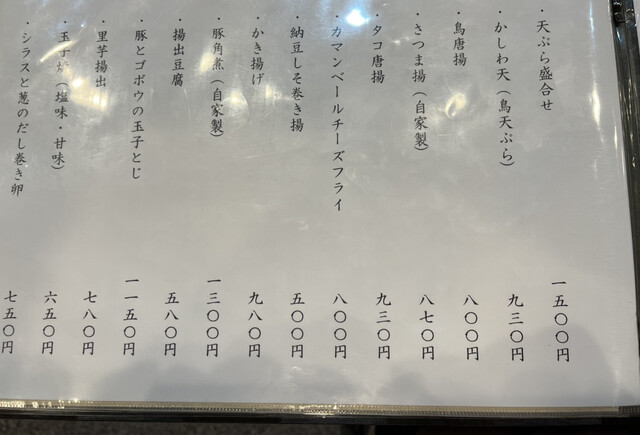 ・天ぷら盛合せ 一五〇〇円
・かしわ天(鳥天ぷら) 九三〇円
・鳥唐揚 八〇〇円
・さつま揚(自家製) 八七〇円
・タコ唐揚 九三〇円
・カマンベールチーズフライ 八〇〇円
・納豆しそ巻き揚 五〇〇円
・かき揚げ 九八〇円
・豚角煮(自家製) 一三〇〇円
・揚出豆腐 五八〇円
・豚とゴボウの玉子とじ 一一五〇円
・里芋揚出 七八〇円
・玉子焼(塩味・甘味) 六五〇円
・シラスと葱のだし巻き卵 七五〇円